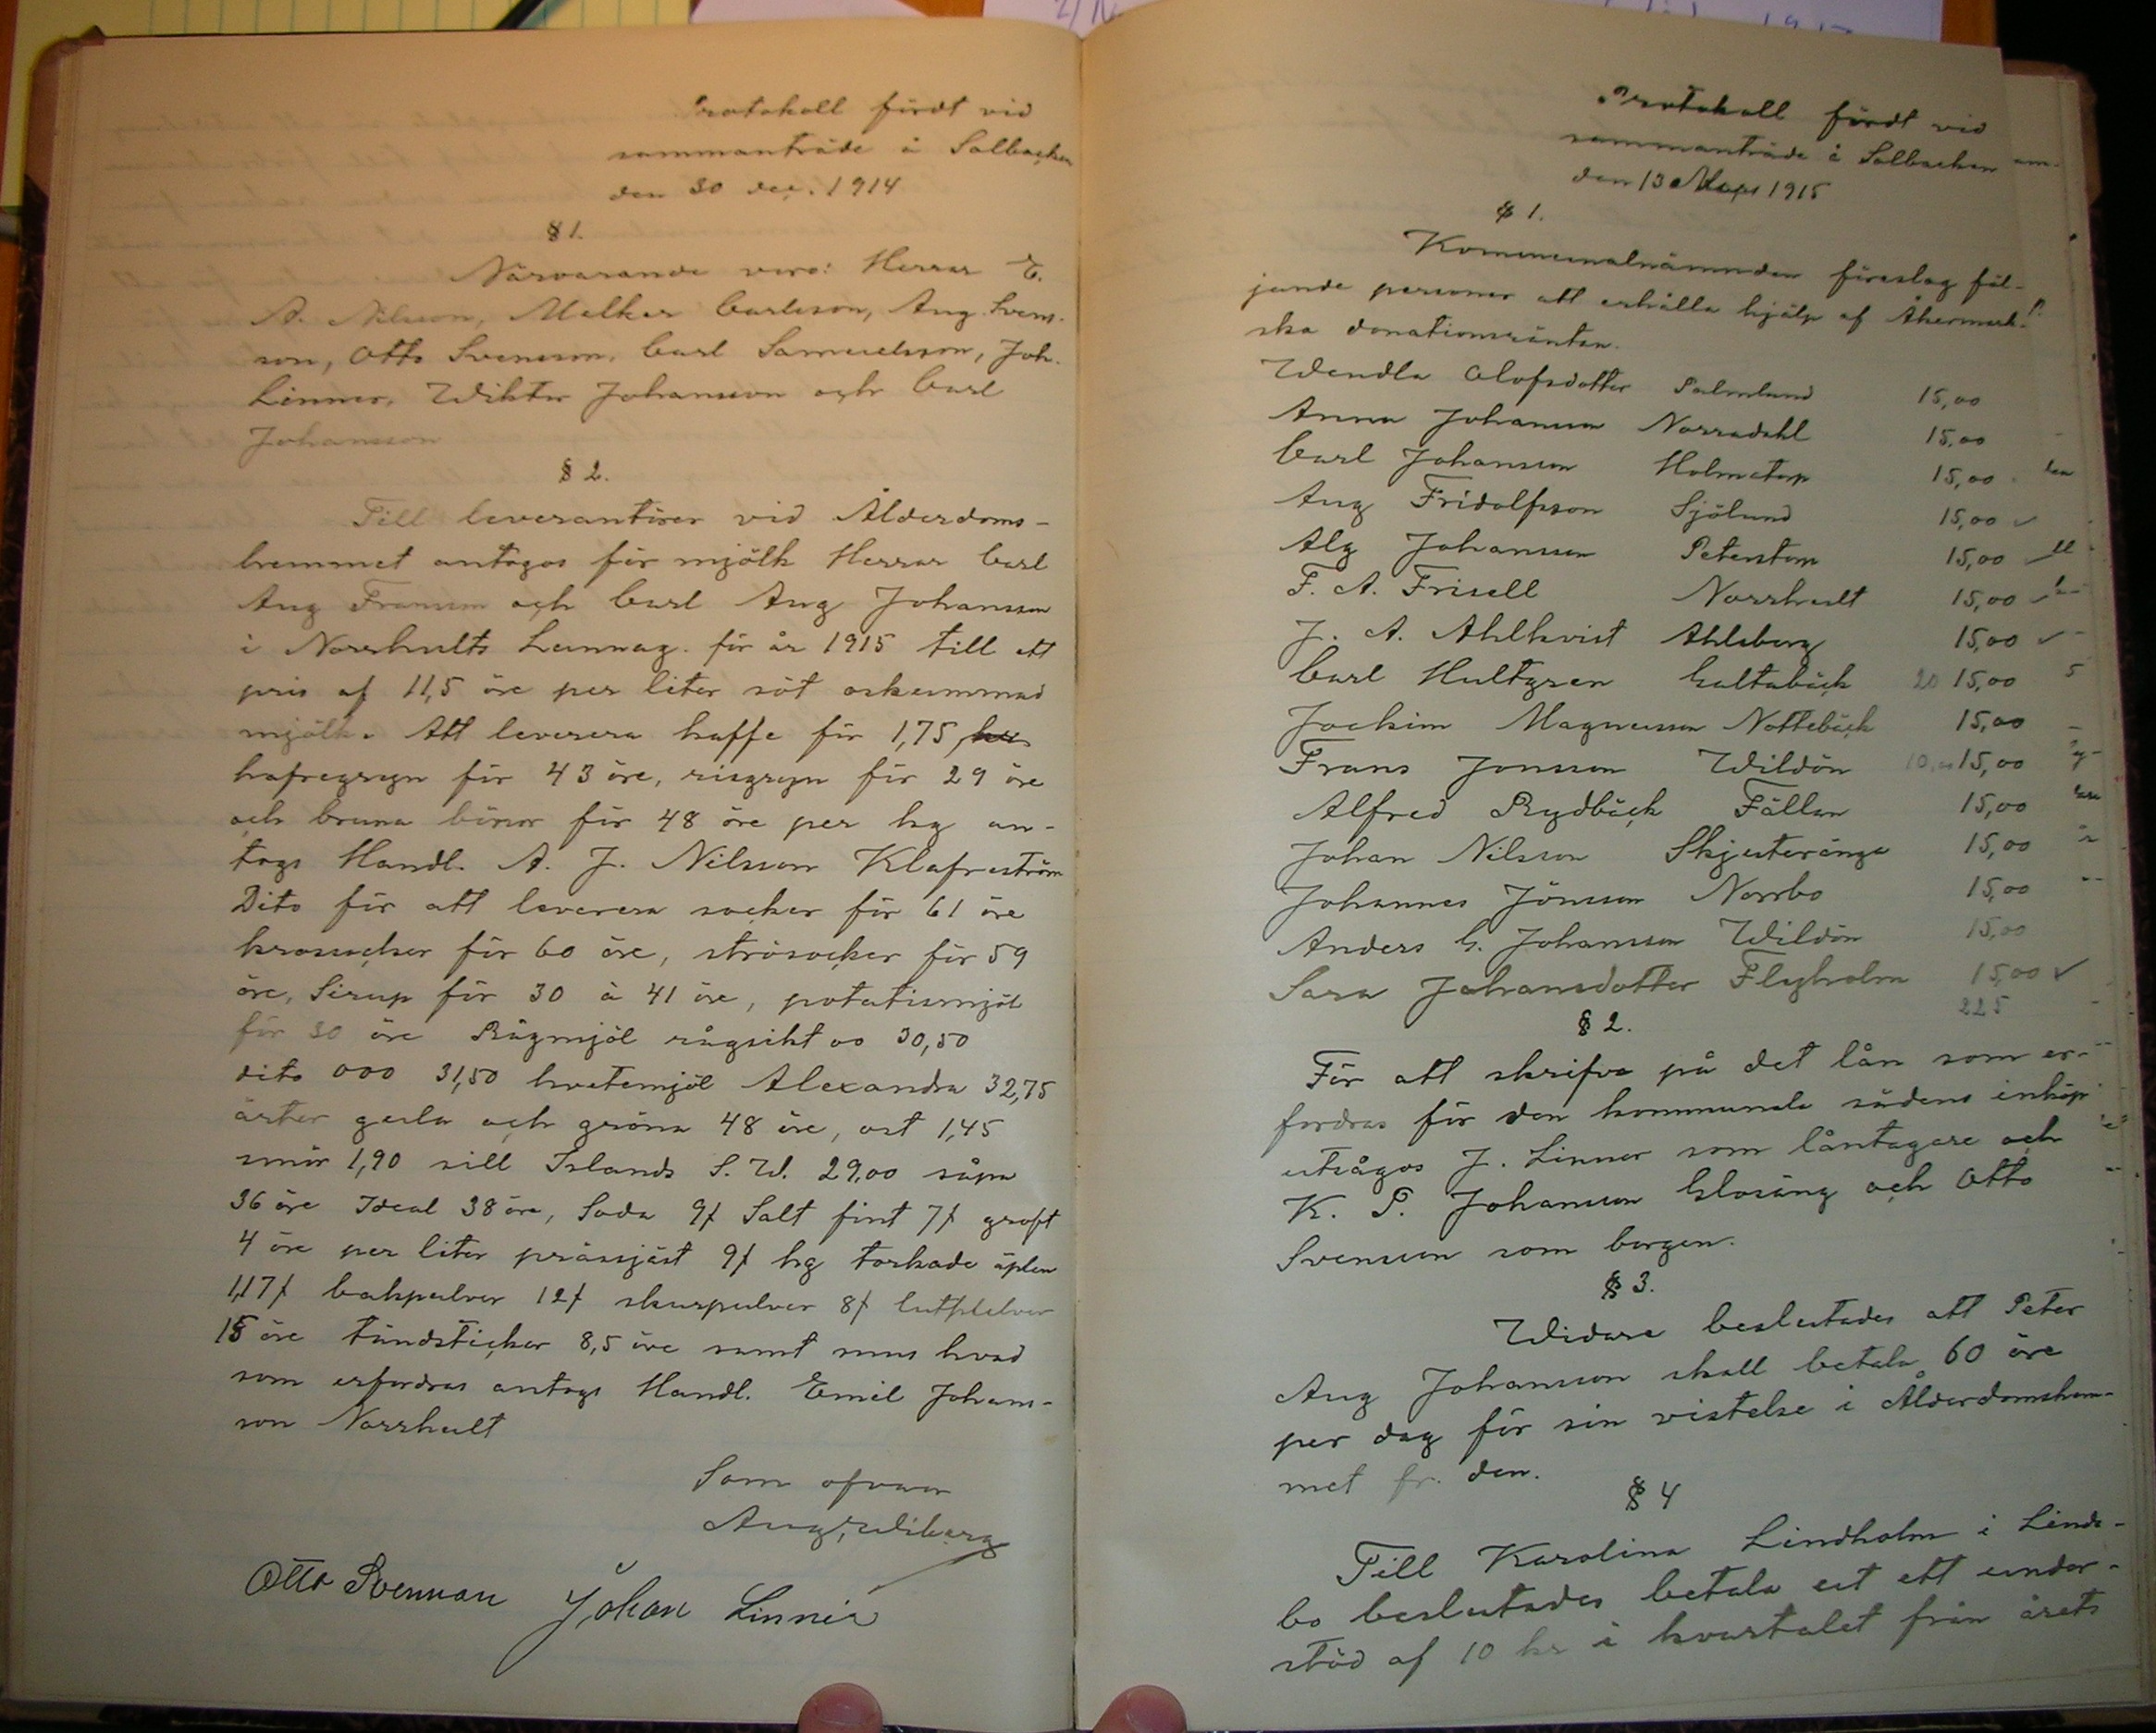 Protokoll fördt vid
sammanträde å Solbacken
den 30 dec. 1914
§ 1.
Närvarande voro: Herrar E.
A. Nilsson, Melker Carlsson, Aug. Svens-
son, Otto Svensson, Carl Samuelsson, Joh.
Linner, Wiktor Johansson och Carl
Johansson
§ 2.
Till leverantörer vid Ålderdoms-
hemmet antogos för mjölk Herrar Carl
Aug Fransson och Carl Aug Johansson
i Norrhults Lunnag. för år 1915 till ett
pris af 11,5 öre per liter söt oskummad
mjölk. Att leverera kaffe för 1,75
hafregryn för 43 öre, risgryn för 29 öre
och bruna bönor för 48 öre per kg an-
togs Handl. A. J. Nilsson Klafreström
Dito för att leverera socker för 61 öre
krossocker för 60 öre, strösocker för 59
öre, Sirup för 30 à 41 öre, potatismjöl
för 30 öre Rågmjöl rågsikt 00 30,50
dito 000 31,50 hvetemjöl Alexandra 32,75
ärter gula och gröna 48 öre, ost 1,45
smör 1,90 sill Islands S. W. 29,00 såpa
36 öre Ideal 38 öre, Soda 9 Salt fint 7 groft
4 öre per liter prässjäst 9 hg torkade äplen
1,17 bakpulver 12 skurpulver 8 lutpulver
15 öre tändstickor 8,5 öre samt mus hvad
som erfordras antogs Handl. Emil Johans-
son Norrhult
Som ofvan
Aug. Wiberg
Otto Svensson Johan Linnér
Protokoll fördt vid
sammanträde å Solbacken
den 13 Mars 1915
§ 1.
Kommunalnämnden föreslog föl-
jande personer att erhålla hjälp af Åkermark-
ska donationsräntan.
Wendla Olofsdotter Palmlund 15,00
Anna Johansson Norradahl 15,00
Carl Johansson Holmstorp 15,00
Aug Fridolfsson Sjölund 15,00
Alg Johansson Peterstorp 15,00
F. A. Frisell Norrhult 15,00
J. A. Ahlkvist Ahlsberg 15,00
Carl Hultgren Galtabäck 20 15,00
Jockim Magnusson Nottebäck 15,00
Frans Jonsson Wildön 10,00 15,00
Alfred Rydbäck Fällan 15,00
Johan Nilsson Skjuteränge 15,00
Johannes Jönsson Norrbo 15,00
Anders G. Johansson Wildön 15,00
Sara Johansdotter Flyholm 15,00
225
§ 2.
För att skrifva på det lån som er-
fordras för den kommunala sädens inköp
utsågos J. Linner som låntagare och
K. P. Johansson Glosäng och Otto
Svensson som borgen.
§ 3.
Widare beslutades att Peter
Aug Johansson skall betala 60 öre
per dag för sin vistelse i Ålderdomshem-
met fr. den.
§ 4
Till Karolina Lindholm i Linde-
bo beslutades betala ut ett under-
stöd af 10 kr i kvartalet från årets